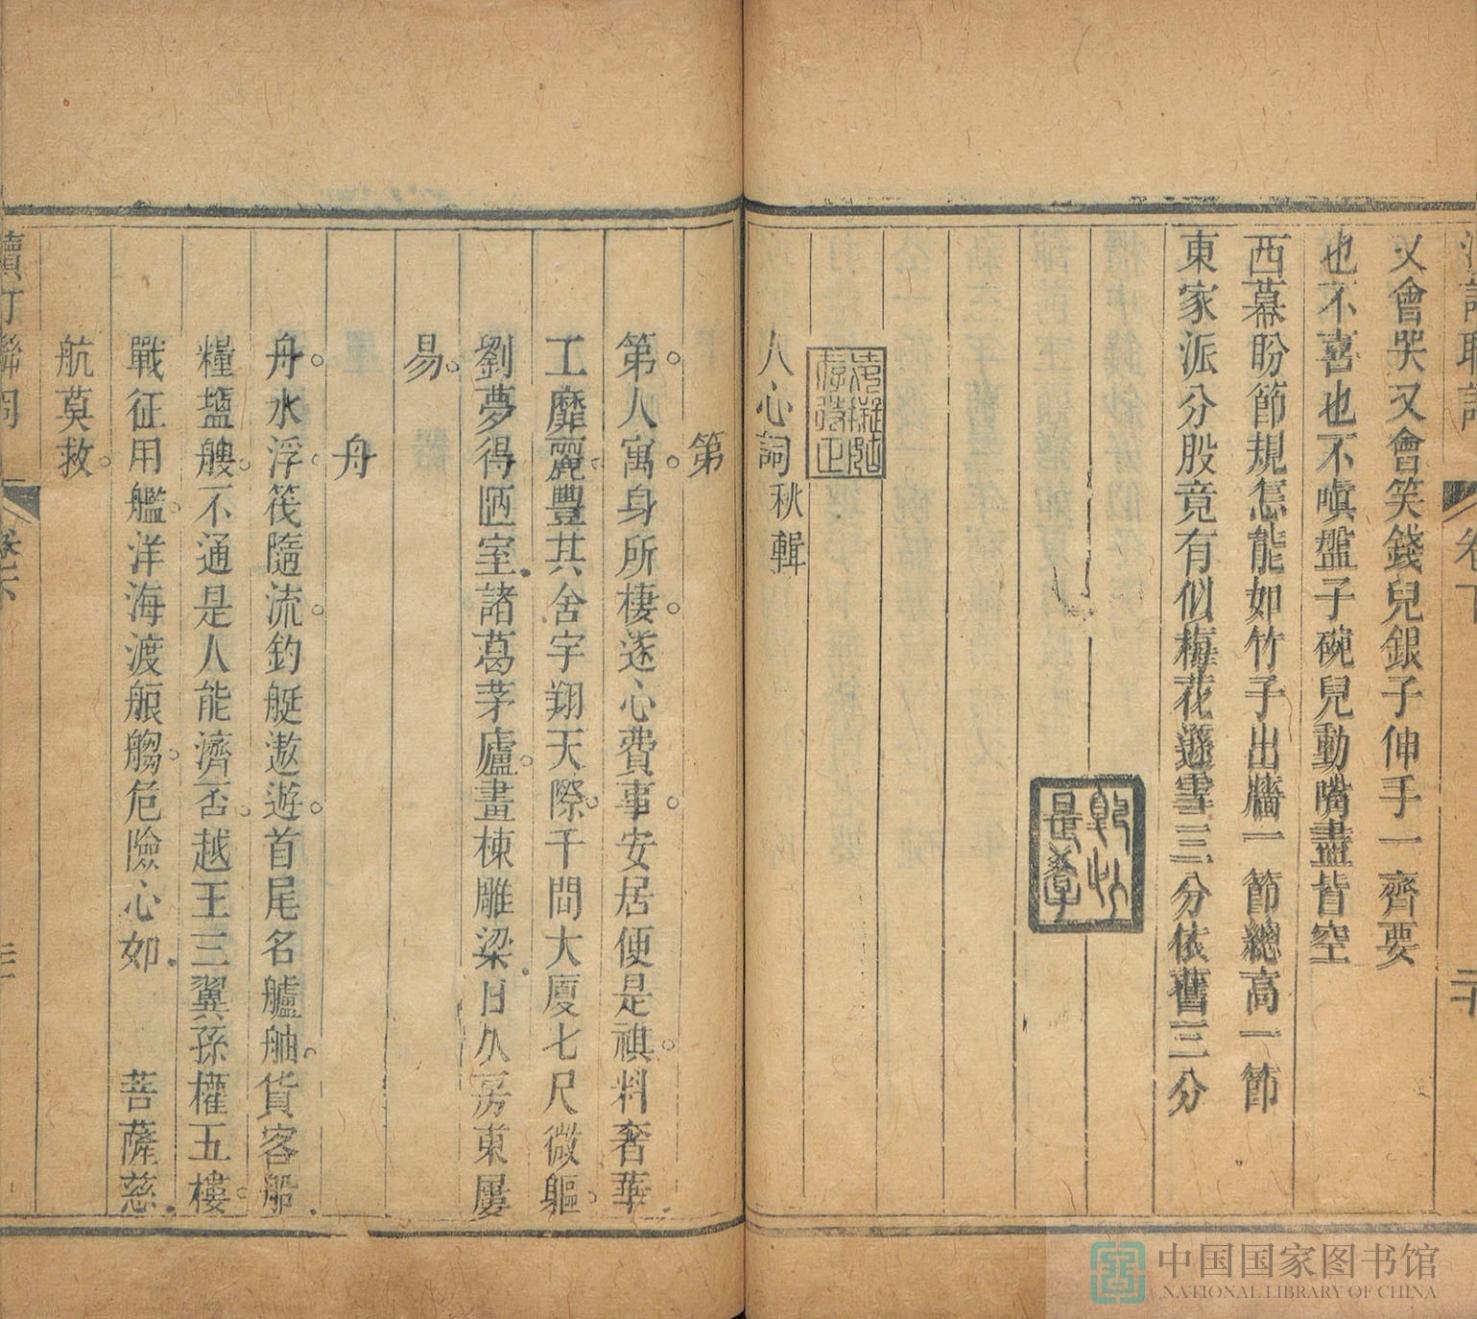 又會哭又會笑錢兒銀子伸手一齊要
也不喜也不嗔盤子碗兒動嘴盡皆空
西幕盼節規怎能如竹子出牆一節總高一節
東家派分股竟有似梅花遜雪三分依舊三分
人心詞秋輯
第
第人寓身所棲遂心費事安居便是祺料奢華
工靡麗豐其舍宇翔天際千間大厦七尺微軀
劉夢得陋室諸葛茅廬畫棟雕梁日久房東屢
易
舟
舟水浮筏隨流釣艇遨遊首尾名艫舳貨客船
糧鹽艘不通是人能濟否越王三翼孫權五樓
戰征用艦洋海渡艆艒危險心如 菩薩慈
航莫救
中国国家图书馆
NATIONAL LIBRARY OF CHINA